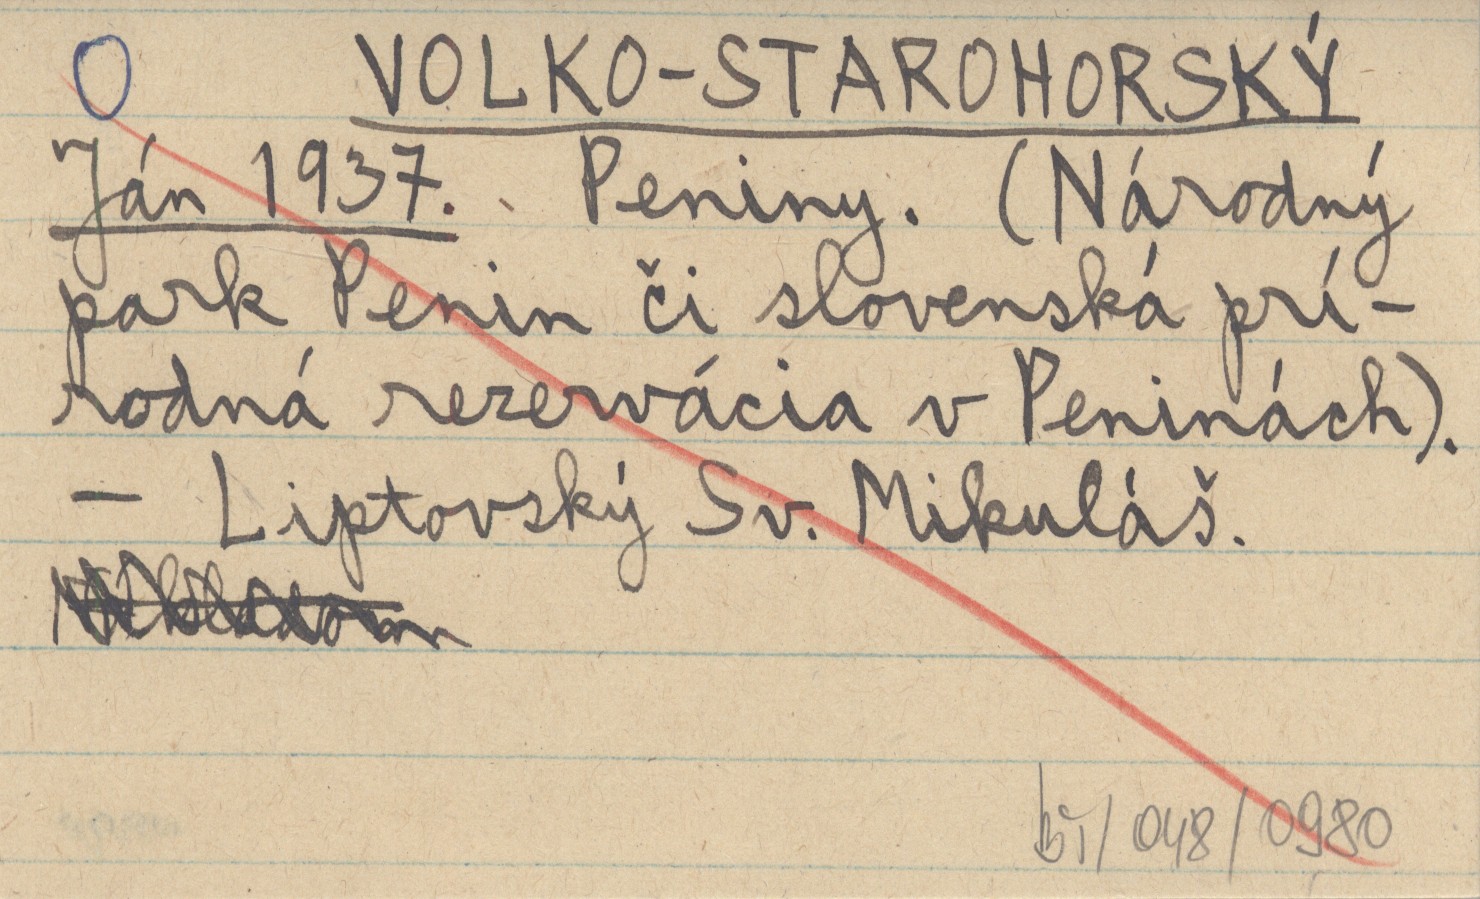 O VOLKO-STAROHORSKÝ
Ján 1937. Peniny. (Národný
park Penin či slovenská prí-
rodná rezervácia v Peninách).
— Liptovský Sv. Mikuláš.
/048/0980